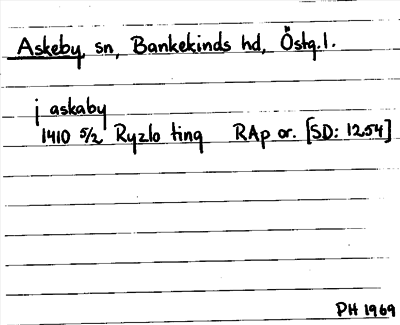 Askeby, sn, Bankekinds hd, Östg.l.
j askaby
1410 5/2 Ryzlo ting RAp or. [SD: 1254]
PH 1969